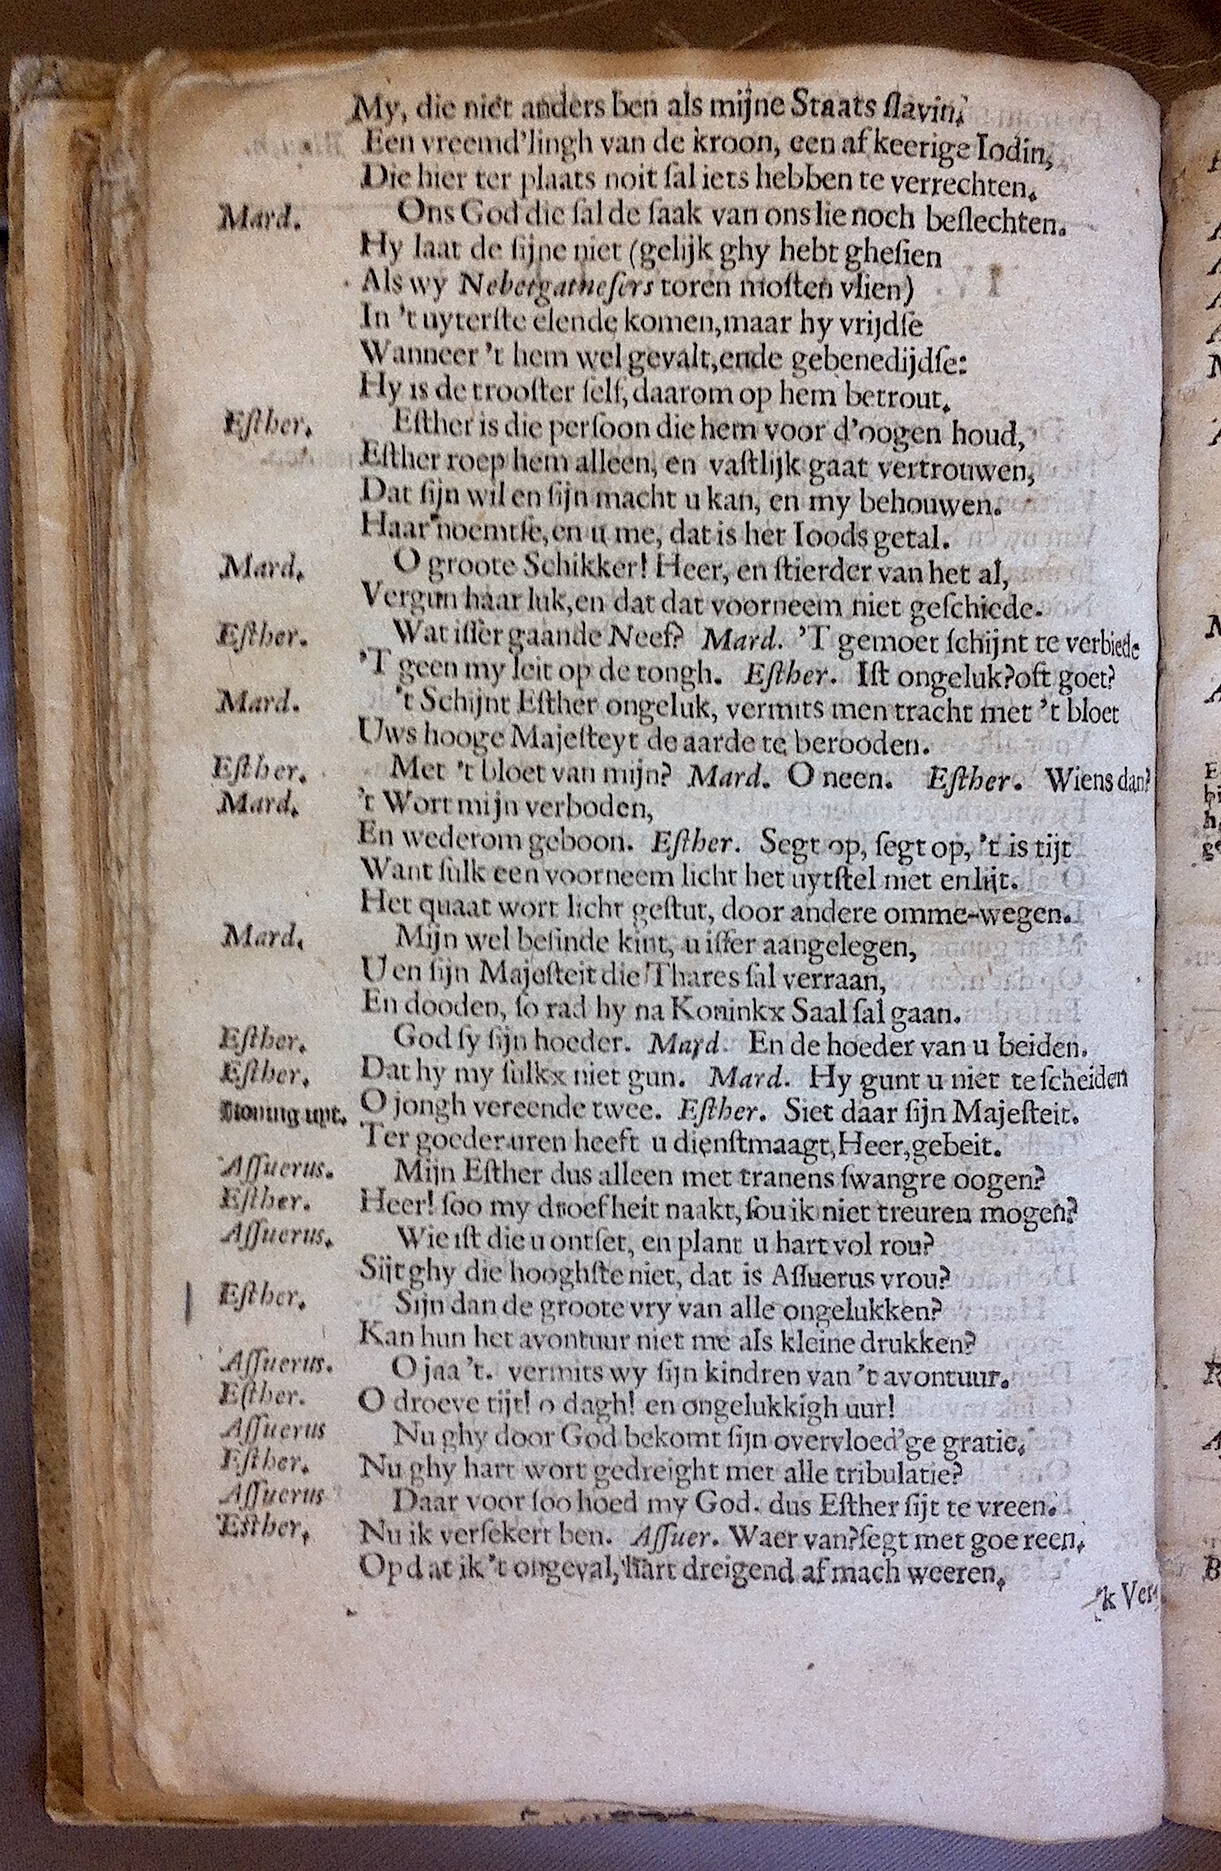 My, die niet anders ben als mijne Staats slavin,
Een vreemd'lingh van de kroon, een af keerige Iodin,
Die hier ter plaats noit sal iets hebben te verrechten.
Mard. Ons God die sal de saak van ons lie noch beslechten.
Hy laat de sijne niet (gelijk ghy hebt ghesien
Als wy Nebetgathesers toren mosten vlien)
In 't uyterste elende komen, maar hy vrijdse
Wanneer 't hem wel gevalt, ende gebenedijdse:
Hy is de trooster self, daarom op hem betrout.
Esther. Esther is die persoon die hem voor d'oogen houd,
Esther roep hem alleen, en vastlijk gaat vertrouwen,
Dat sijn wil en sijn macht u kan, en my behouwen.
Haar noemtse, en u me, dat is het Ioods getal.
Mard. O groote Schikker! Heer, en stierder van het al,
Vergun haar luk, en dat dat voorneem niet geschiede.
Esther. Wat isser gaande Neef? Mard. 'T gemoet schijnt te verbiede
'T geen my leit op de tongh. Esther. Ist ongeluk? oft goet?
Mard. 't Schijnt Esther ongeluk, vermits men tracht met 't bloet
Uws hooge Majesteyt de aarde te berooden.
Esther. Met 't bloet van mijn? Mard. O neen. Esther. Wiens dan?
Mard. 't Wort mijn verboden,
En wederom geboon. Esther. Segt op, segt op, 't is tijt
Want sulk een voorneem licht het uytstel niet en lijt.
Het quaat wort licht gestut, door andere omme-wegen.
Mard. Mijn wel besinde kint, u isser aangelegen,
U en sijn Majesteit die Thares sal verraan,
En dooden, so rad hy na Koninkx Saal sal gaan.
Esther. God sy sijn hoeder. Mard. En de hoeder van u beiden.
Esther. Dat hy my sulkx niet gun. Mard. Hy gunt u niet te scheiden
Koning uyt. O jongh vereende twee. Esther. Siet daar sijn Majesteit.
Ter goeder uren heeft u dienstmaagt, Heer, gebeit.
Assuerus. Mijn Esther dus alleen met tranens swangre oogen?
Esther. Heer! soo my droef heit naakt, sou ik niet treuren mogen?
Assuerus. Wie ist die u ontset, en plant u hart vol rou?
Sijt ghy die hooghste niet, dat is Assuerus vrou?
Esther. Sijn dan de groote vry van alle ongelukken?
Kan hun het avontuur niet me als kleine drukken?
Assuerus. O jaa 't. vermits wy sijn kindren van 't avontuur.
Esther. O droeve tijt! o dagh! en ongelukkigh uur!
Assuerus Nu ghy door God bekomt sijn overvloed'ge gratie.
Esther. Nu ghy hart wort gedreight met alle tribulatie?
Assuerus Daar voor soo hoed my God. dus Esther sijt te vreen.
Esther. Nu ik versekert ben. Assuer. Waer van? segt met goe reen.
Op dat ik 't ongeval, hart dreigend af mach weeren,
'k Ver-